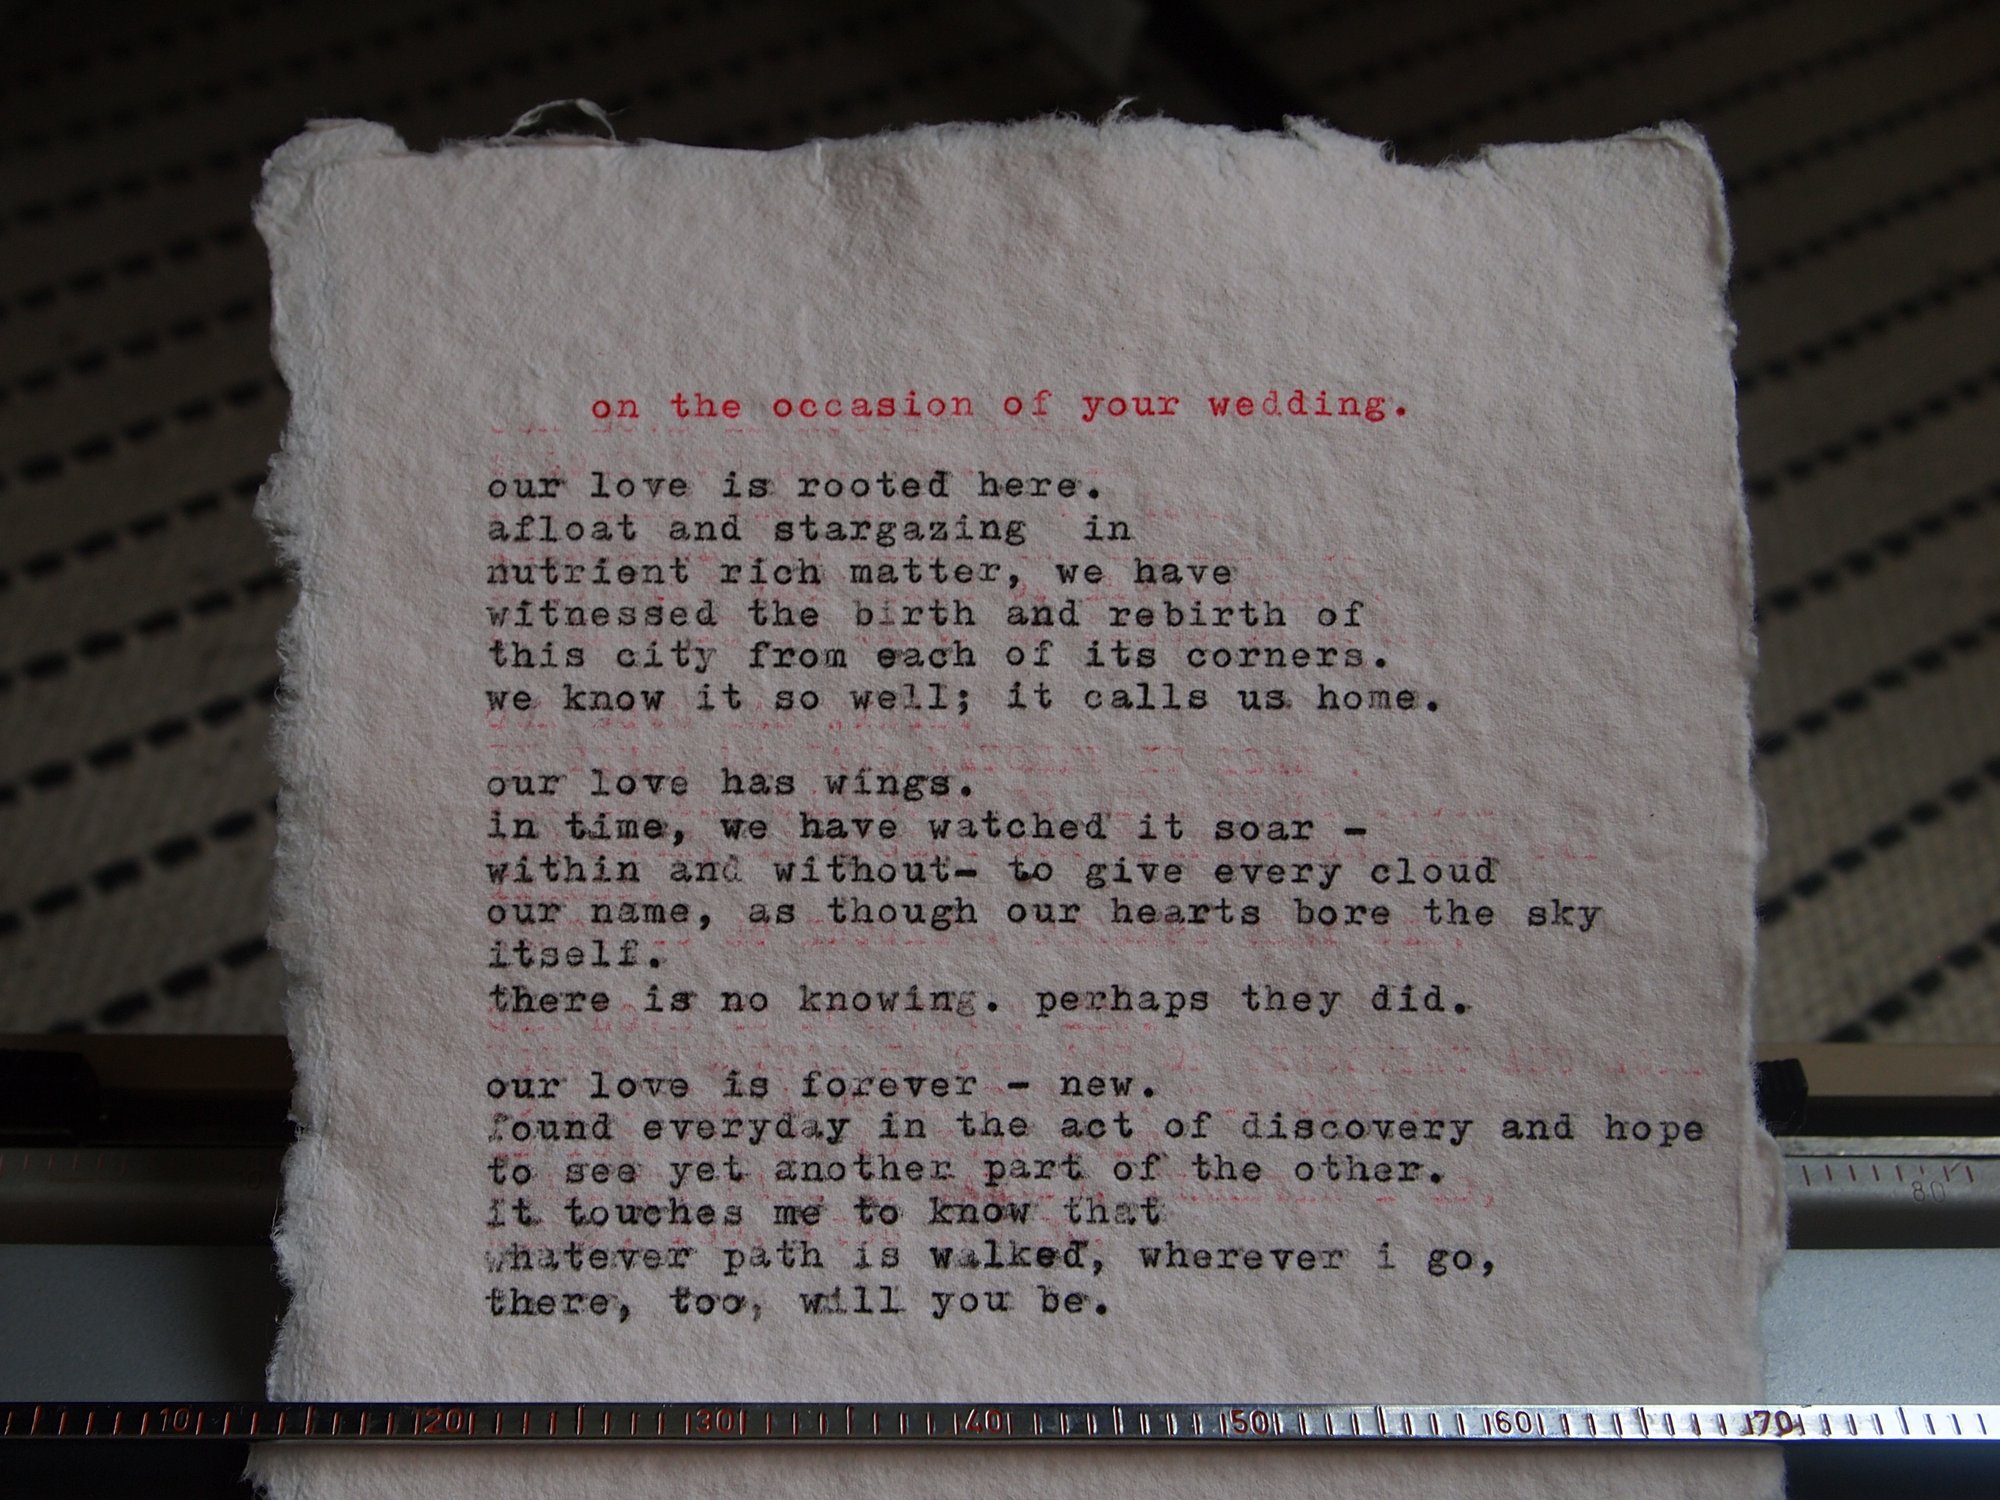 on the occasion of your wedding.
our love is rooted here.
afloat and stargazing  in
nutrient rich matter, we have
witnessed the birth and rebirth of
this city from each of its corners.
we know it so well; it calls us home.
our love has wings.
in time, we have watched it soar -
within and without- to give every cloud
our name, as though our hearts bore the sky
itself.
there is no knowing. perhaps they did.
our love is forever - new.
found everyday in the act of discovery and hope
to see yet another part of the other.
it touches me to know that
whatever path is walked, wherever i go,
there, too, will you be.
80
10 20 30 40 50 60 70